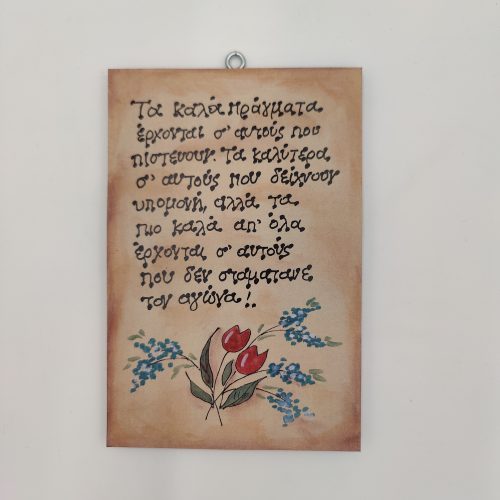 Τα καλά πράγματα
έρχονται σ' αυτούς που
πιστεύουν. Τα καλύτερα
σ' αυτούς που δείχνουν
υπομονή, αλλά τα
πιο καλά απ' όλα
έρχονται σ' αυτούς
που δεν σταματανέ
τον αγώνα!.